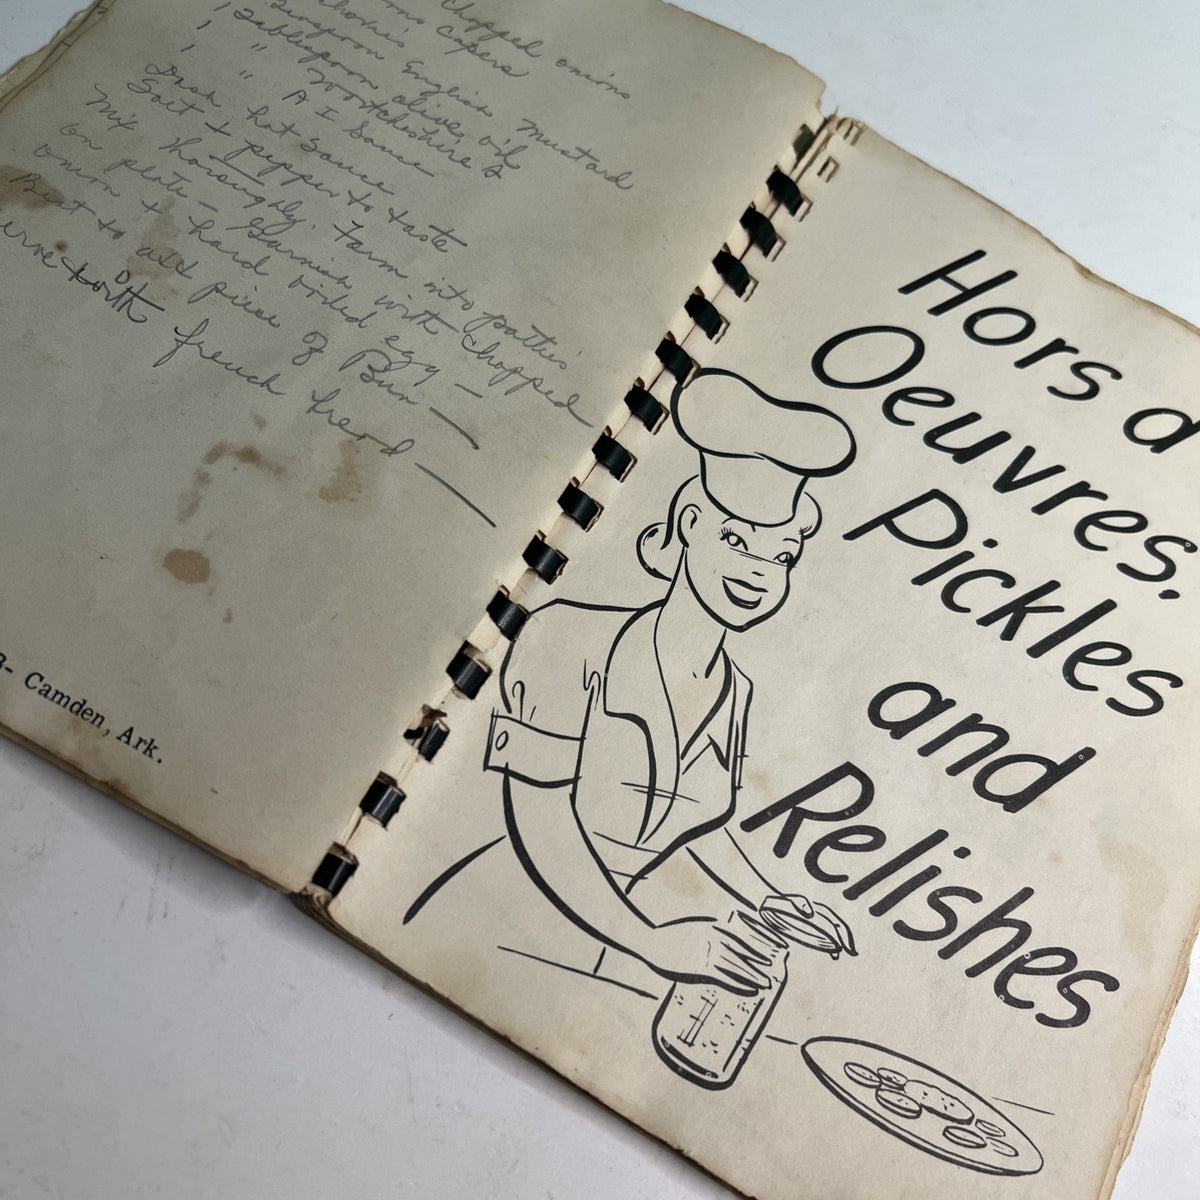 Chopped onions
Capers
Teaspoon English Mustard
1 Tablespoon olive oil
1 " Worcheshire S
1 " A I Sauce
Dash hot sauce
Salt + pepper to taste
Mix thoroughly. Form into patties
on plate - Garnish with chopped
onion + hard boiled egg -
Best to add piece of Bun -
serve with french bread -
3- Camden, Ark.
Hors d
Oeuvres,
Pickles
and
Relishes